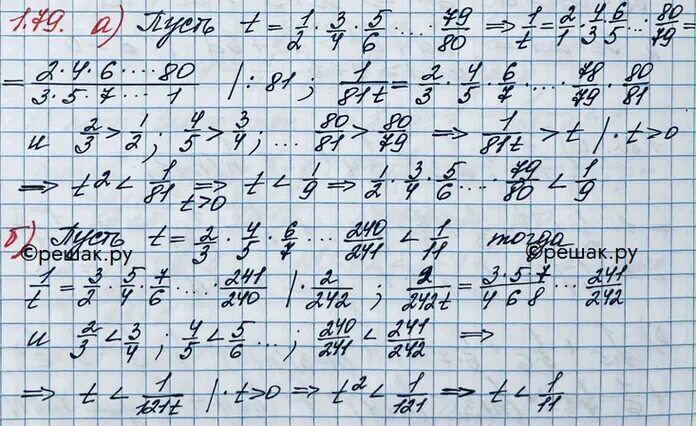 1.79. а) Пусть t = 1/2 · 3/4 · 5/6 ... · 79/80 ⇒ 1/t = 2/1 · 4/3 · 6/5 ... · 80/79 =
= (2·4·6·...·80)/(3·5·7·...·1) | : 81 ; 1/(81t) = 2/3 · 4/5 · 6/7 · ... · 78/79 · 80/81
и 2/3 > 1/2 ; 4/5 > 3/4 ; ... 80/81 > 80/79 ⇒ 1/(81t) > t | · t > 0
⇒ t² < 1/81 ⇒ t>0 t < 1/9 ⇒ 1/2 · 3/4 · 5/6 ... · 79/80 < 1/9
б) Пусть t = 2/3 · 4/5 · 6/7 ... 240/241 < 1/11 тогда
©решак.ру ©решак.ру
1/t = 3/2 · 5/4 · 7/6 · ... · 241/240 | · 2/242 ; 2/(242t) = (3·5·7)/(4 6 8) ... · 241/242
и 2/3 < 3/4 ; 4/5 < 5/6 ... ; 240/241 < 241/242 ⇒
⇒ t < 1/(121t) | · t > 0 ⇒ t² < 1/121 ⇒ t < 1/11